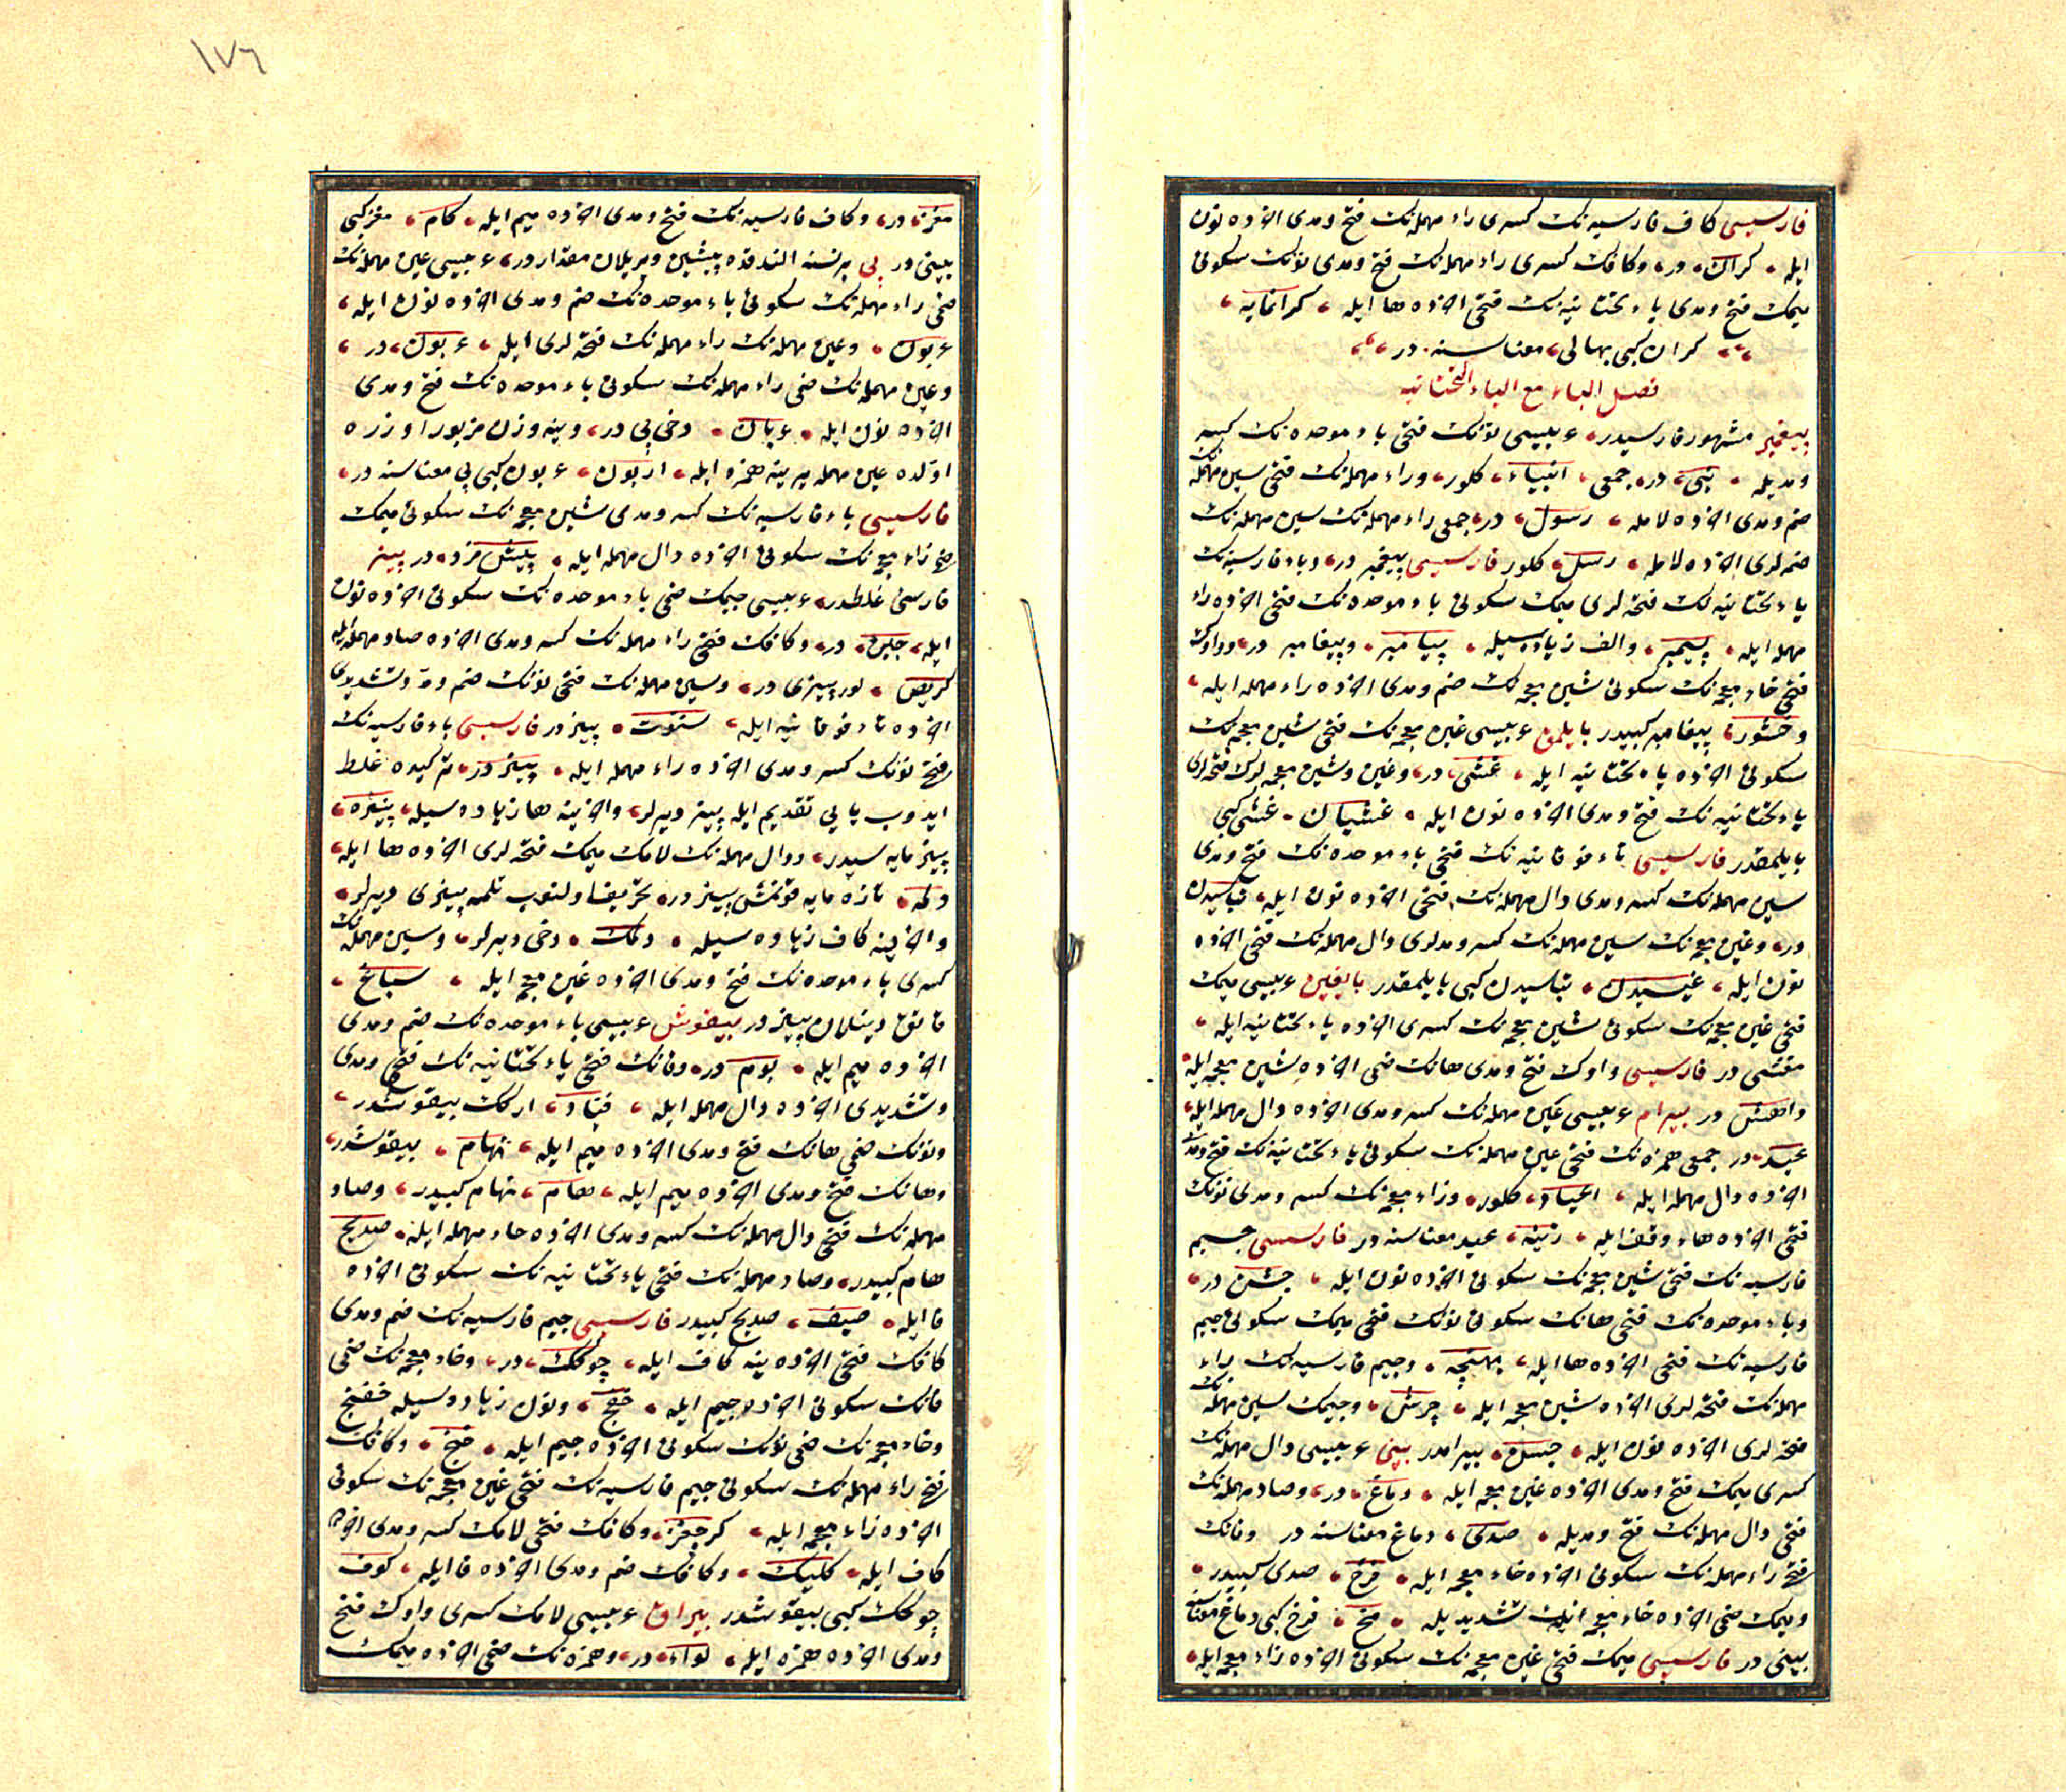 فارسیسی كاف فارسیه نك كسری راء مهمله نك فتح ومدی اخرده نون
ایله گران در وكافك كسری راء مهمله نك فتح ومدی نونك سكونی
میمك فتح ومدی یاء تحتانیه نك فتحی اخرده ها ایله گرانمایه
گران كبی بهالی معناسنه در
فصل الباء مع الیاء التحتانیه
پیغمبر مشهور فارسیدر عربیسی نونك فتحی باء موحده نك كسر
ومدیله نبی در جمعی انبیاء كلور وراء مهمله نك فتحی سین مهمله نك
ضم ومدی اخرده لامله رسول در جمعی راء مهمله نك سین مهمله نك
ضمه لری اخرده لامله رسل كلور فارسیسی پیغمبر در وباء فارسیه نك
یاء تحتانیه نك فتحه لری میمك سكونی باء موحده نك فتحی اخرده راء
مهمله ایله پیمبر والف زیاده سیله پیامبر وپیغامبر در وواوك
فتحی خاء معجمه نك سكونی شین معجمه نك ضم ومدی اخرده راء مهمله ایله
وخشور پیغامبر كبیدر بایلمق عربیسی غین معجمه نك فتحی شین معجمه نك
سكونی اخرده یاء تحتانیه ایله غشی در وغین وشین معجمه لرك فتحه لری
یاء تحتانیه نك فتح ومدی اخرده نون ایله غشیان غشی كبی
بایلمقدر فارسیسی تاء فوقانیه نك فتحی باء موحده نك فتح ومدی
سین مهمله نك كسر ومدی دال مهمله نك فتحی اخرده نون ایله تباسیدن
در وغین معجمه نك سین مهمله نك كسر ومدلری دال مهمله نك فتحی اخرده
نون ایله غیسیدن تباسیدن كبی بایلمقدر بایغین عربیسی میمك
فتحی غین معجمه نك سكونی شین معجمه نك كسری اخرده یاء تحتانیه ایله
مغشی در فارسیسی واوك فتح ومدی هانك ضمی اخرده شین معجمه ایله
واهش در بیرام عربیسی عین مهمله نك كسر ومدی اخرده دال مهمله ایله
عید در جمعی همزه نك فتحی عین مهمله نك سكونی یاء تحتانیه نك فتح ومدی
اخرده دال مهمله ایله اعیاد كلور وزاء معجمه نك كسر ومدی نونك
فتحی اخرده هاء وقف ایله زینه عید معناسنه در فارسیسی جیم
فارسیه نك فتحی شین معجمه نك سكونی اخرده نون ایله جشن در
وباء موحده نك فتحی هانك سكونی نونك فتحی میمك سكونی جیم
فارسیه نك فتحی اخرده ها ایله وجیم فارسیه نك راء
مهمله نك فتحه لری اخرده شین معجمه ایله چرش وجیمك سین مهمله نك
فتحه لری اخرده نون ایله جسن بیرامدر بینی عربیسی دال مهمله نك
كسری میمك فتح ومدی اخرده غین معجمه ایله دماغ در وصاد مهمله نك
فتحی دال مهمله نك فتح ومدیله صدی دماغ معناسنه در وفانك
فتحی راء مهمله نك سكونی اخرده خاء معجمه ایله فرخ صدی كبیدر
ومیمك ضمی اخرده خاء معجمه نك تشدیدیله مخ فرخ كبی دماغ معناسنه
بینی در فارسیسی میمك فتحی غین معجمه نك سكونی اخرده زاء معجمه ایله
١٧٦
مغز در وكاف فارسیه نك فتح ومدی اخرده میم ایله كام مغز كبی
بینی در پی بر نسنه الندقده پیشین ویریلان مقدار در عربیسی عین مهمله نك
ضمی راء مهمله نك سكونی باء موحده نك ضم ومدی اخرده نون ایله
عربون وعین مهمله نك راء مهمله نك فتحه لری ایله عربون در
وعین مهمله نك ضمی راء مهمله نك سكونی باء موحده نك فتح ومدی
اخرده نون ایله عربان دخی پی در وینه وزن مزبور اوزره
اولده عین مهمله یرینه همزه ایله اربون عربون كبی پی معناسنه در
فارسیسی باء فارسیه نك كسر ومدی شین معجمه نك سكونی میمك
ضمی زاء معجمه نك سكونی اخرده دال مهمله ایله پیش مزد در پینر
فارسی غلطدر عربیسی جیمك ضمی باء موحده نك سكونی اخرده نون
ایله جبن در وكافك فتحی راء مهمله نك كسر ومدی اخرده صاد مهمله ایله
كریص لور پینری در وسین مهمله نك فتحی نونك ضم ومد وتشدیدی
اخرده تاء فوقانیه ایله سنوت پینر در فارسیسی باء فارسیه نك
فتحی نونك كسر ومدی اخرده راء مهمله ایله پنیر در تركیده غلط
ایدوب یایی تقدیم ایله پینر دیرلر واخرینه ها زیاده سیله پنیره
پینر مایه سیدر ودال مهمله نك لامك میمك فتحه لری اخرده ها ایله
دلمه تازه مایه قونمش پینر در تحریف اولنوب تلمه پینری دیرلر
واخرینه كاف زیاده سیله دلمك دخی دیرلر وسین مهمله نك
كسری باء موحده نك فتح ومدی اخرده غین معجمه ایله سباغ
قاتق دینلان پینر در بیقوش عربیسی باء موحده نك ضم ومدی
اخرده میم ایله بوم در وفانك فتحی یاء تحتانیه نك فتح ومدی
وتشدیدی اخرده دال مهمله ایله فیّاد اركك بیقوشدر
ونونك ضمی هانك فتح ومدی اخرده میم ایله نهام بیقوشدر
وهانك فتح ومدی اخرده میم ایله هام نهام كبیدر وصاد
مهمله نك فتحی دال مهمله نك كسر ومدی اخرده حاء مهمله ایله صدیح
هام كبیدر وصاد مهمله نك فتحی یاء تحتانیه نك سكونی اخرده
فا ایله صیف صدیح كبیدر فارسیسی جیم فارسیه نك ضم ومدی
كافك فتحی اخرده ینه كاف ایله چوكك در وخاء معجمه نك ضمی
فانك سكونی اخرده جیم ایله خفج ونون زیاده سیله خفنج
وخاء معجمه نك ضمی نونك سكونی اخرده جیم ایله خنج وكافك
فتحی راء مهمله نك سكونی جیم فارسیه نك فتحی غین معجمه نك سكونی
اخرده زاء معجمه ایله كرچغز وكافك فتحی لامك كسر ومدی اخرده
كاف ایله كلیك وكافك ضم ومدی اخرده فا ایله كوف
چوكك كبی بیقوشدر بیراق عربیسی لامك كسری واوك فتح
ومدی اخرده همزه ایله لواء در وهمزه نك ضمی اخرده میمك